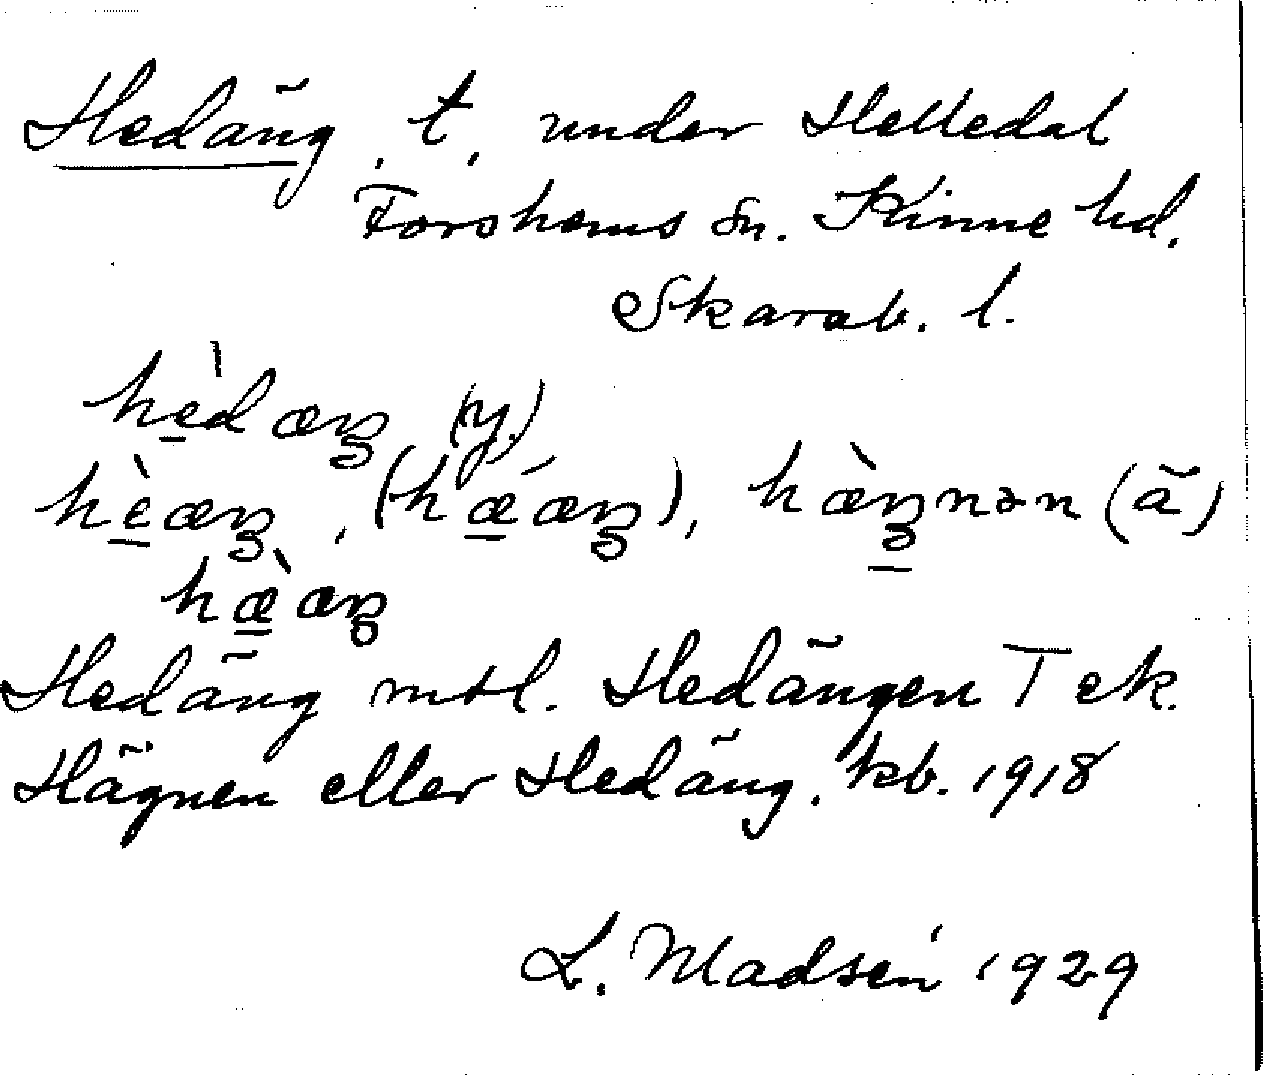 Hedäng, t, under Helledal
Forshems sn. Kinne hd.
Skarab. l.
hèdæŋ (y.)
hèæŋ, (hǽæŋ), hæ̀ŋnən (ä)
hæ̀æŋ
Hedäng mtl. Hedängen T ek.
Hägnen eller Hedäng. kb. 1918
L. Madsén 1929